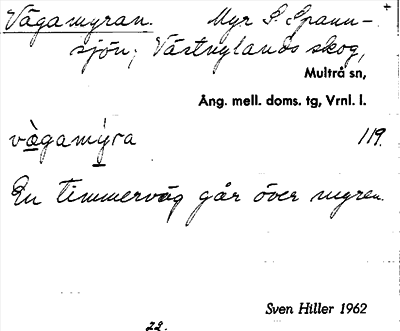 Vägamyran. Myr S. Spann-
sjön, Västnylands skog,
Multrå sn,
Ång. mell. doms. tg, Vrnl. l.
vägamýra 119.
En timmerväg går över myren.
Sven Hiller 1962
22.